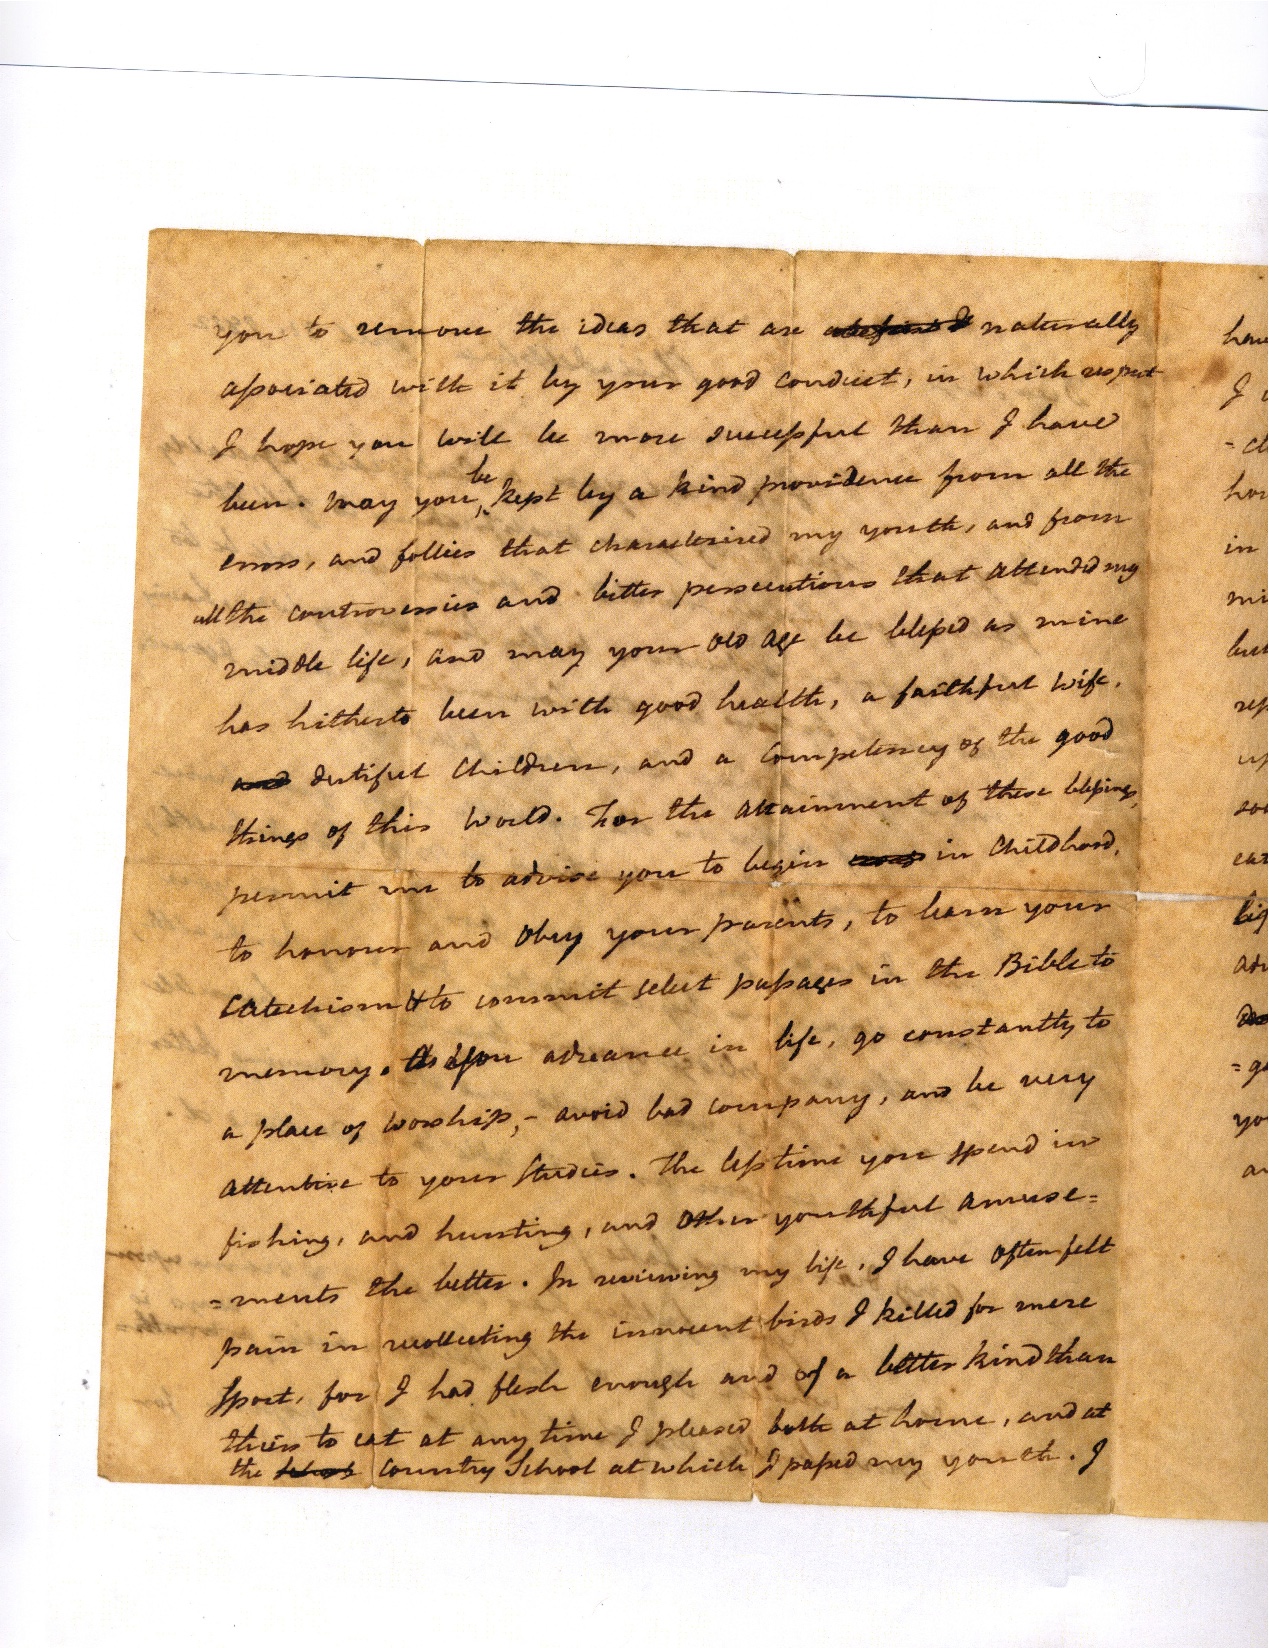 you to remove the ideas that are naturally
associated with it by your good conduct, in which respect
I hope you will be more successful than I have
been. May you be kept by a kind providence from all the
errors, and follies that characterised my youth, and from
all the controversies and bitter persecutions that attended my
middle life, and may your old age be blessed as mine
has hitherto been with good health, a faithful wife,
and dutiful children, and a competency of the good
things of this world. For the attainment of these blessings,
permit me to advise you to begin in Childhood,
to honour and obey your parents, to learn your
Catechism & to commit select passages in the Bible to
memory. As you advance in life, go constantly to
a place of worship, – avoid bad company, and be very
attentive to your studies. The less time you spend in
fishing, and hunting, and other youthful amuse=
=ments the better. In reviewing my life, I have often felt
pain in recollecting the innocent birds I killed for mere
sport, for I had flesh enough and of a better kind than
theirs to eat at any time I pleased both at home, and at
the School Country School at which I passed my youth. I
have
I
in